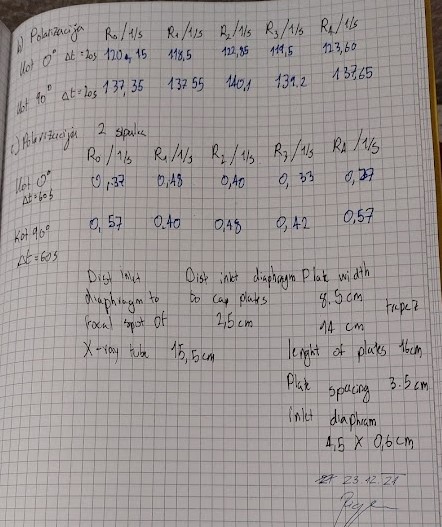 b) Polarizacija
R₀ /1/s R₁ /1/s R₂ /1/s R₃ /1/s R₄ /1/s
Kot 0° Δt = 20s 120, 15 118,5 122,85 111,5 123,60
Kot 90° Δt = 20s 137, 35 137.55 140,1 131.2 137,65
c) Polarizacija 2
R₀ /1/s R₁ /1/s R₂ /1/s R₃ /1/s R₄ /1/s
Kot 0° 0,37 0,48 0,40 0, 33 0,27
Δt = 60s
Kot 90° 0, 57 0.40 0,48 0, 42 0,57
Δt = 60s
Dist Inlet
diaphragm to
focal spot of
X-ray tube 15,5cm
Dist inlet diaphragm
to cap plates
2,5cm
Plate width
8.5cm
14 cm
trapez
lenght of plates 16cm
Plate spacing 3.5cm
inlet diaphram
4,5 X 0,6cm
23.12.21